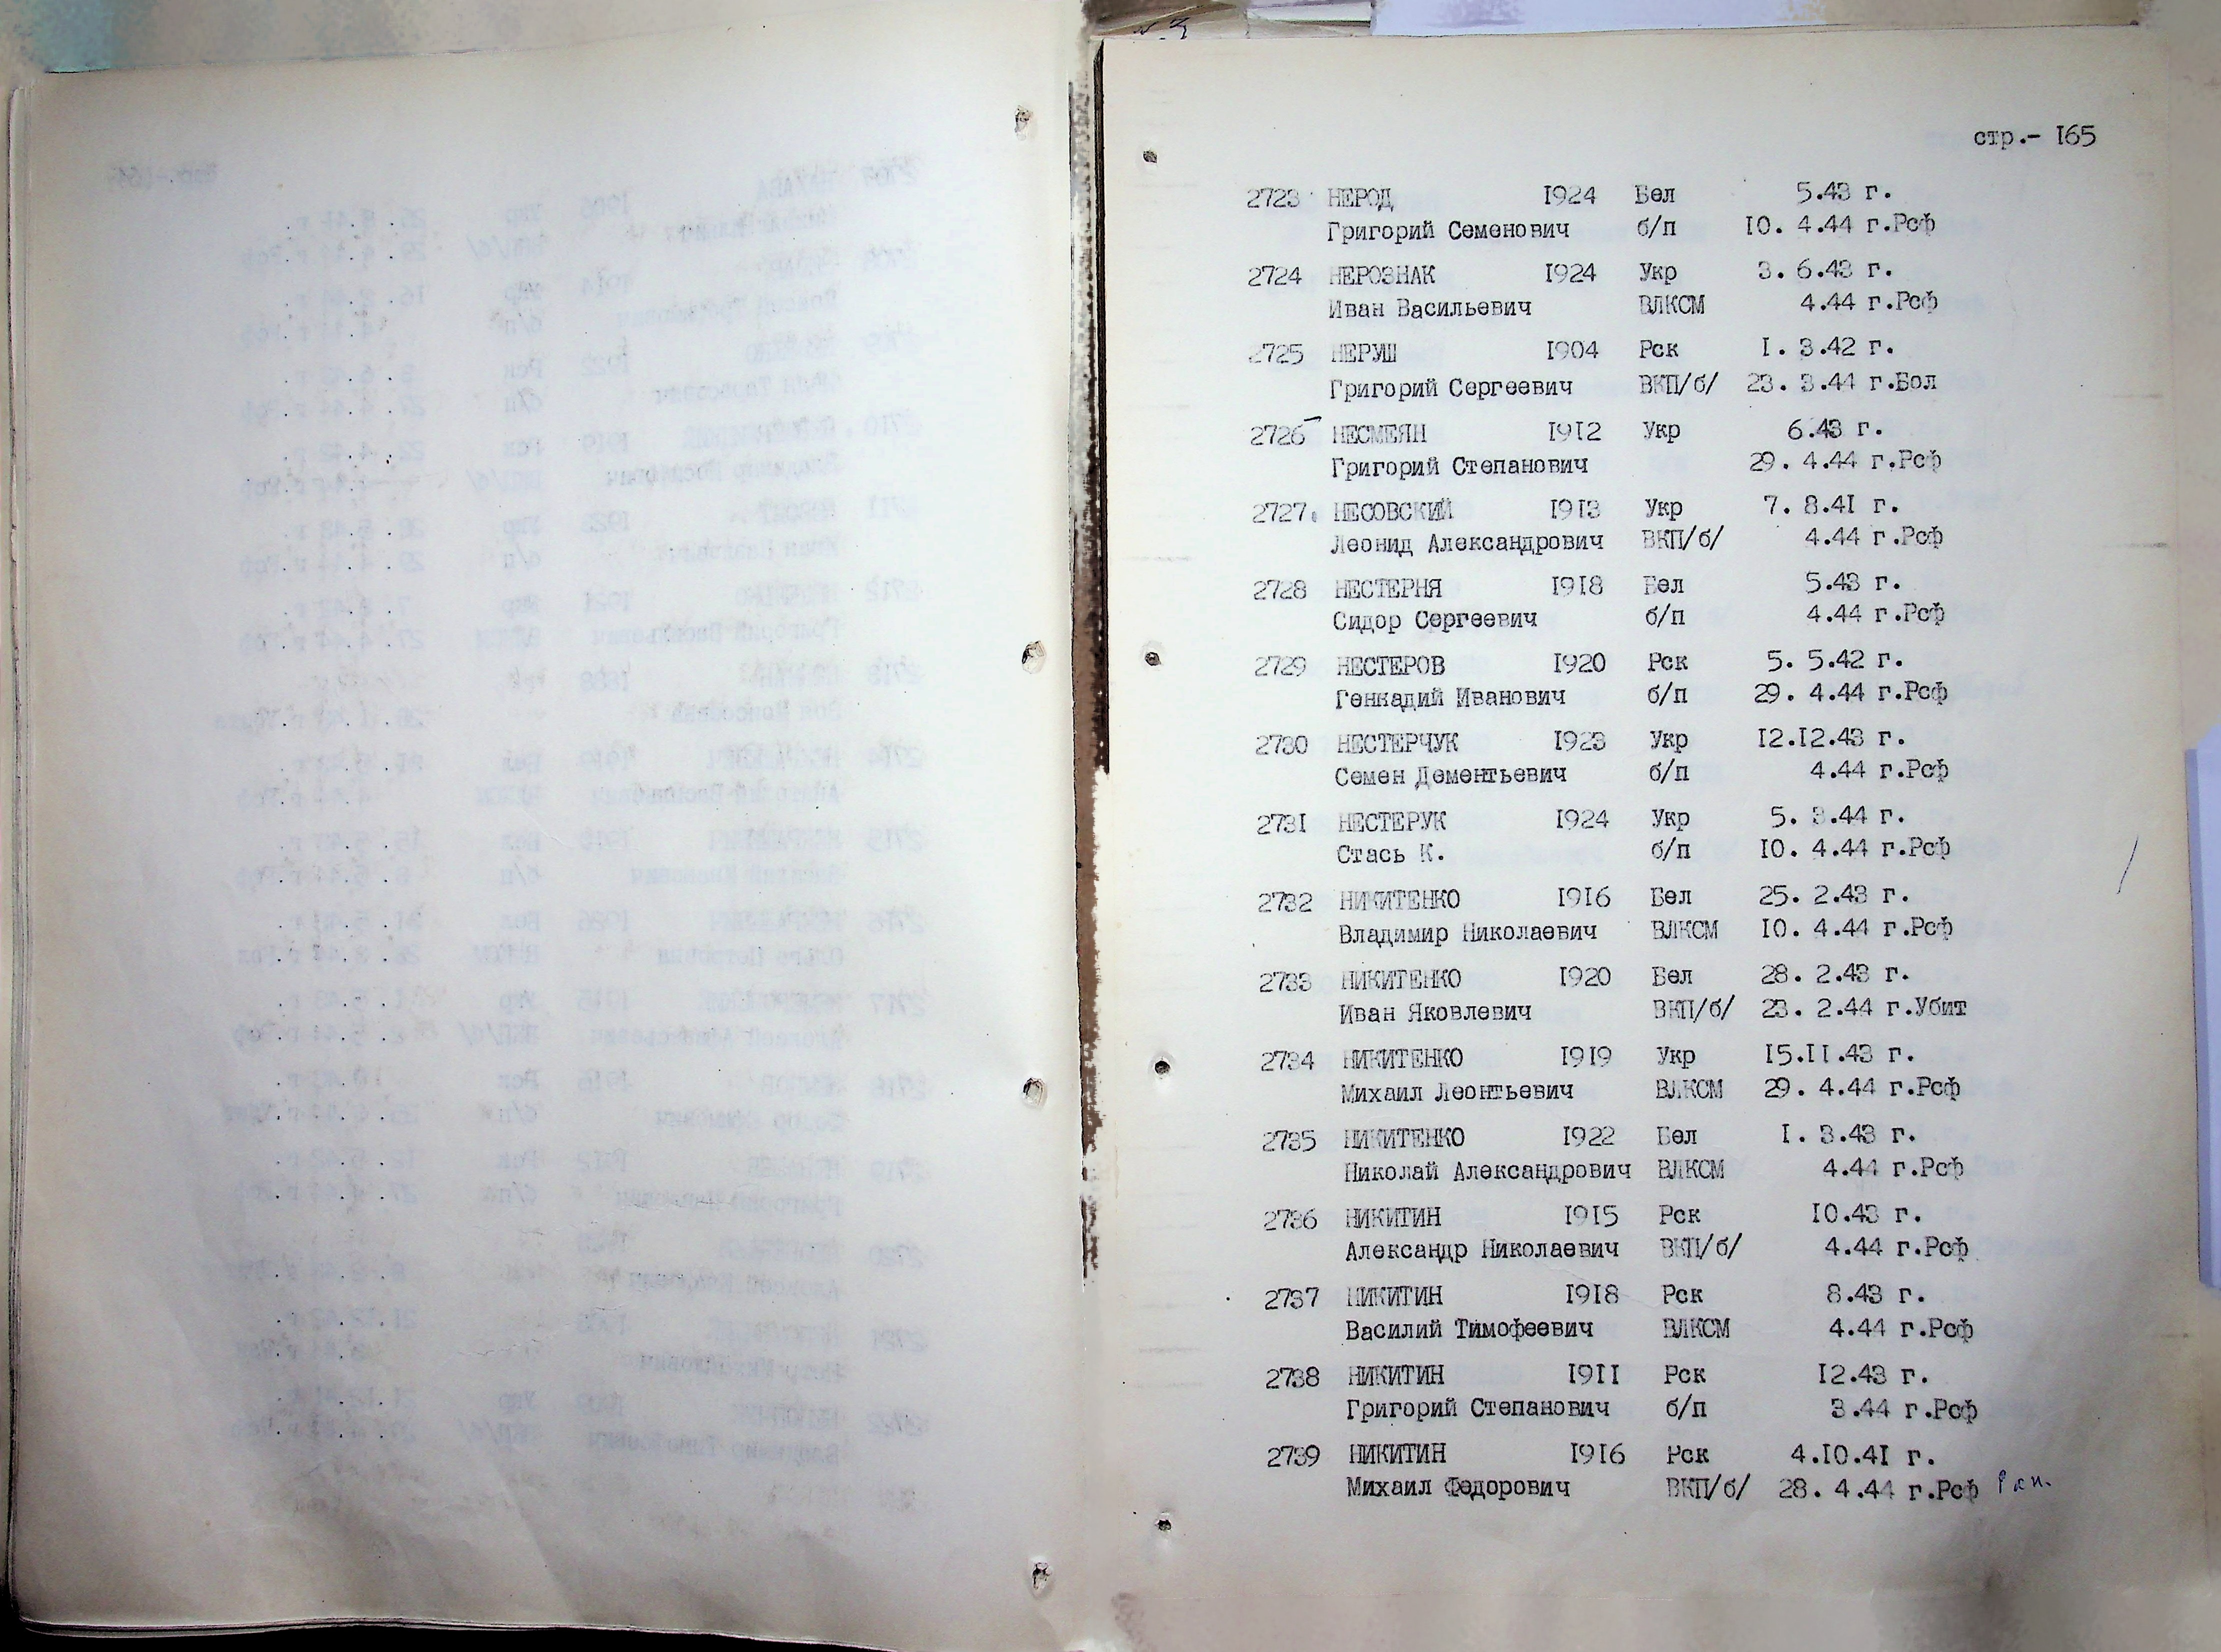 стр.- 165
2723 НЕРОД 1924 Бел 5.43 г.
Григорий Семенович б/п 10. 4.44 г.Рсф
2724 НЕРОЗНАК 1924 Укр 3. 6.43 г.
Иван Васильевич ВЛКСМ 4.44 г.Рсф
2725 НЕРУШ 1904 Рск 1. 3.42 г.
Григорий Сергеевич ВКП/б/ 23. 3.44 г.Бол
2726 НЕСМЕЯН 1912 Укр 6.43 г.
Григорий Степанович 29. 4.44 г.Рсф
2727. НЕСОВСКИЙ 1913 Укр 7. 8.41 г.
Леонид Александрович ВКП/б/ 4.44 г.Рсф
2728 НЕСТЕРНЯ 1918 Бел 5.43 г.
Сидор Сергеевич б/п 4.44 г.Рсф
2729 НЕСТЕРОВ 1920 Рск 5. 5.42 г.
Геннадий Иванович б/п 29. 4.44 г.Рсф
2730 НЕСТЕРЧУК 1923 Укр 12.12.43 г.
Семен Дементьевич б/п 4.44 г.Рсф
2731 НЕСТЕРУК 1924 Укр 5. 3.44 г.
Стась К. б/п 10. 4.44 г.Рсф
2732 НИКИТЕНКО 1916 Бел 25. 2.43 г.
Владимир Николаевич ВЛКСМ 10. 4.44 г.Рсф
2733 НИКИТЕНКО 1920 Бел 28. 2.43 г.
Иван Яковлевич ВКП/б/ 23. 2.44 г.Убит
2734 НИКИТЕНКО 1919 Укр 15.11.43 г.
Михаил Леонтьевич ВЛКСМ 29. 4.44 г.Рсф
2735 НИКИТЕНКО 1922 Бел 1. 3.43 г.
Николай Александрович ВЛКСМ 4.44 г.Рсф
2736 НИКИТИН 1915 Рск 10.43 г.
Александр Николаевич ВКП/б/ 4.44 г.Рсф
2737 НИКИТИН 1918 Рск 8.43 г.
Василий Тимофеевич ВЛКСМ 4.44 г.Рсф
2738 НИКИТИН 1911 Рск 12.43 г.
Григорий Степанович б/п 3.44 г.Рсф
2739 НИКИТИН 1916 Рск 4.10.41 г.
Михаил Федорович ВКП/б/ 28. 4.44 г.Рсф